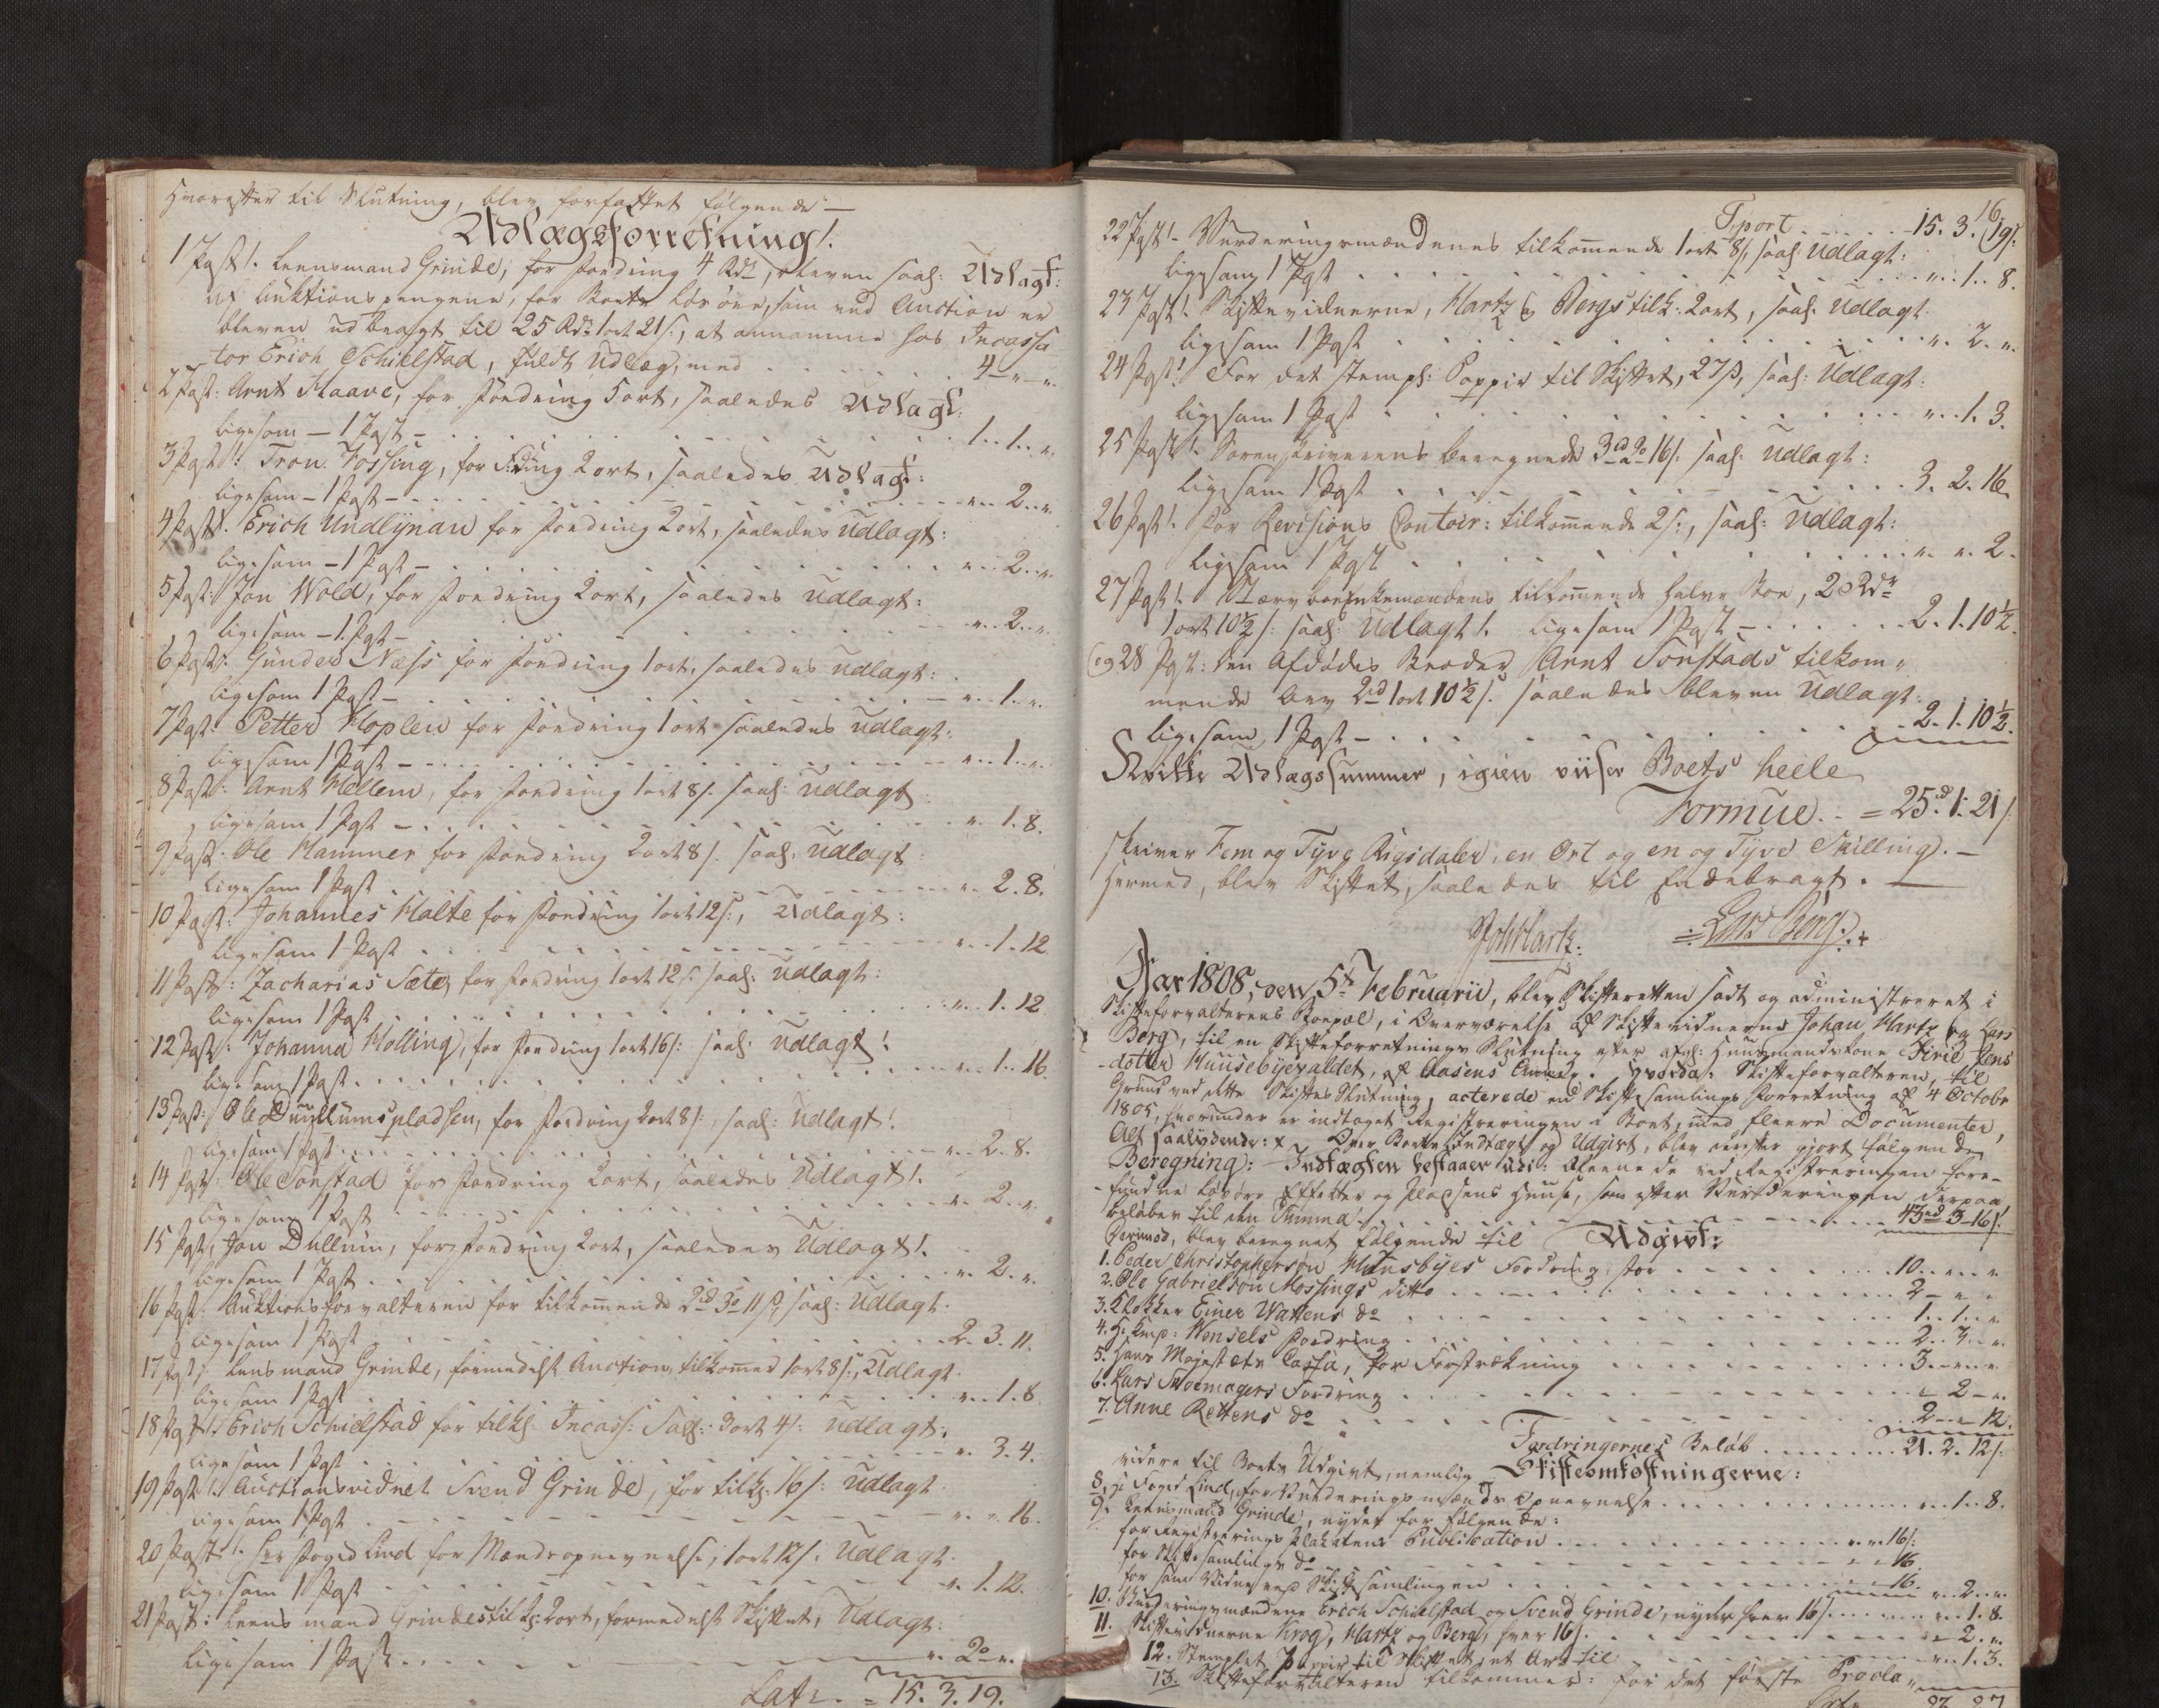 Hvorefter til Slutning, blev forfattet følgende —
Udlægsforretning!.
1 Post!. Leensmand Grinde, for Fordring 4 Rdr, bleven saal: Udlagt:
af Auktionspengene, for Boets Løsøre, som ved Auction er
bleven udbragt til 25 Rdr 1 ort 21 s., at annamme hos Incassa
tor Erich Schielstad, fuldt Udlæg, med . . . . . 4 „ „
2 Post: Arnt Staave, for Fordring 5 ort, saaledes Udlagt:
ligesom — 1 Post — . . . . . 1. 1. „
3 Post: Tron Fossing, for Fording 2 ort, saaledes Udlagt:
ligesom — 1 Post — . . . . . „ 2. „
4 Post!. Erich Undlynau for Fordring 2 ort, saaledes Udlagt:
ligesom — 1 Post — . . . . . „ 2. „
5 Post: Jon Wold, for Fordring 2 ort, saaledes Udlagt:
ligesom — 1. Post — . . . . . „ 2. „
6 Post: Gunder Næss for Fordring 1 ort, saaledes Udlagt:
ligesom 1 Post — . . . . . „ 1. „
7 Post: Petter Koplen for Fordring 1 ort saaledes Udlagt:
ligesom 1 Post — . . . . . „ 1. „
8 Post: Arnt Mellem, for Fordring 1 ort 8 s. saal: Udlagt
ligesom 1 Post — . . . . . „ 1. 8.
9 Post: Ole Hammer for Fordring 2 ort 8 s. saal: Udlagt
ligesom 1 Post . . . . . „ 2. 8.
10 Post: Johannes Halte for Fordring 1 ort 12 s:, Udlagt:
ligesom 1 Post . . . . . „ 1. 12
11 Post: Zacharias Sæter for Fordring 1 ort 12 s. saal: Udlagt:
ligesom 1 Post . . . . . „ 1. 12
12 Post: Johanna Holling, for Fordring 1 ort 16 s: saal: Udlagt!
ligesom 1 Post . . . . . „ 1. 16
13 Post: Ole Dullumspladsen, for Fordring 2 ort 8 s:, saal: Udlagt!
ligesom 1 Post . . . . . „ 2. 8.
14 Post: Ole Sonstad for Fordring 2 ort, saaledes Udlagt!.
ligesom 1 Post . . . . . „ 2. „
15 Post, Jon Dullum, for Fordring 2 ort, saaledes Udlagt!.
ligesom 1 Post . . . . . „ 2. „
16 Post: Auktionsforvalteren for tilkommende 2 rd 3 o 11 s, saal: Udlagt.
ligesom 1 Post . . . . . 2. 3. 11.
17 Post, Lensmand Grinde, formedelst Auction, tilkommer 1 ort 8 s:, Udlagt.
ligesom 1 Post . . . . . „ 1. 8
18 Post!. Erich Schielstad for tilk: Incass: Sal: 3 ort 4 s: Udlagt:
ligesom 1 Post . . . . . „ 3. 4.
19 Post!. Auctionsvidnet Svend Grinde, for tilk: 16 s: Udlagt
ligesom 1 Post . . . . . „ „ 16.
20 Post!. Hrr Foged Lind for Mændsopnevnelse, 1 ort 12 s: Udlagt.
ligesom 1 Post . . . . . „ 1. 12.
21 Post: Leensmand Grindes tilk: 2 ort, formedelst Skiftet, Udlagt:
ligesom 1 Post . . . . . „ 2 o „
Lats. = 15. 3. 19.
Tsport . . . . . 15. 3. 19
22 Post!. Vurderingsmændenes tilkommende 1 ort 8 s, saal: Udlagt:
ligesom 1 Post . . . . . „ 1. 8.
23 Post!. Skiftevidnerne, Hartz og Bergs tilk: 2 ort, saal: Udlagt.
ligesom 1 Post . . . . . „ 2. „
24 Post!. For det stempl: Pappir til Skiftet, 27 s, saal: Udlagt:
ligesom 1 Post . . . . . „ 1. 3.
25 Post!. Sorenskriverens beregnede 3 rd 2 o 16 s. saal: Udlagt:
ligesom 1 Post . . . . . 3. 2. 16.
26 Post!. For Revisions Contoir: tilkommende 2 s:, saal: Udlagt:
ligesom 1 Post . . . . . „ „ 2.
27 Post!. Stervboe Enkemandens tilkommende halve Boe, 2 Rdr
1 ort 10½ s: saal: Udlagt!. ligesom 1 Post — . . . . . 2. 1. 10½.
og 28 Post: den Afdødes Broder Arnt Sonstads tilkom„
mende Arv 2 rd 1 ort 10½ s. saaledes bleven Udlagt:
ligesom 1 Post — . . . . . 2. 1. 10½.
Hvilke Udlagssummer, igien viiser Boets heele
Formue. . = 25 rd 1. 21 s
skriver Fem og Tyve Rigsdaler, en Ort og en og Tyve Skilling. —
Hermed, blev Skiftet, saaledes til Endebragt. —
JohHartz. Lars Berg.
Aar 1808, den 5te Februarii, blev Skifteretten sadt og administreret i
Skifteforvalterens Boepæl, i Overværelse af Skiftevidnerne Johan Hartz og Lars
Berg, til en Skifteforretnings Slutning efter afgl: Huusmandskone Sirie Jens
-dotter Huusebyevaldet, af Aasens Annex. Hvorda. Skifteforvalteren, til
Grund ved dette Skiftes Slutning, acterede en Skiftesamlings Forretning af 4 Octobr
1805, hvorunder er indtaget Registreringen i Boet, med fleere Documenter,
Alt saalydende: x Over Boets Indtægt og Udgivt, blev derefter gjort følgende
Beregning: Indtægten bestaaer udi: Alene de ved Registreringen fore-
-fundne Løsøre Effecter og Pladsens Huuse, som efter Vurderingen derpaa
beløber til den Summa! . . . . . 43 rd 3 16 s!
Derimod, blev beregnet følgende til Udgivt:
1. Peder Christophersøn Huusbyes Fordring stor . . . . . 10 „ „
2. Ole Gabrielsøn Mossings ditto . . . . . 2 „ „
3. Klokker Einer Wattens do . . . . . 1. 1. „
4. Hr Kmp: Wensels Fordring . . . . . 2. 3. „
5. Hans Majestets Cassa, for Forstrækning . . . . . 3. „ „
6. Lars Skoemagers Fordring . . . . . „ 2 „
7. Anne Rettens do . . . . . 2 „ 12.
Fordringernes Beløb . . . . . 21. 2. 12 s.
videre til Boets Udgivt, nemlig Skifteomkostningerne:
8. Hr Foged Lind, for Vurderingsmænds Opnevnelse . . . . . „ 1. 8.
9. Leensmand Grinde, nyder for følgende:
for Registrerings Plakatens Publication . . . . . „ „ 16 s:
for Skiftesamlings do . . . . . „ „ 16.
for som Vidne ved Skiftesamlingen . . . . . 16. „ 2. „
10. Vurderingsmændene Erich Schielstad og Svend Grinde, nyder hver 16 s. . . . „ 1. 8.
11. Skiftevidnerne Krog, Hartz og Berg, hver 16 s. . . . . „ 2. „
12. Stemplet Pappir til Skiftet, et Ark til . . . . . „ 1. 3.
13. Skifteforvalteren tilkommer: for det første Procla„